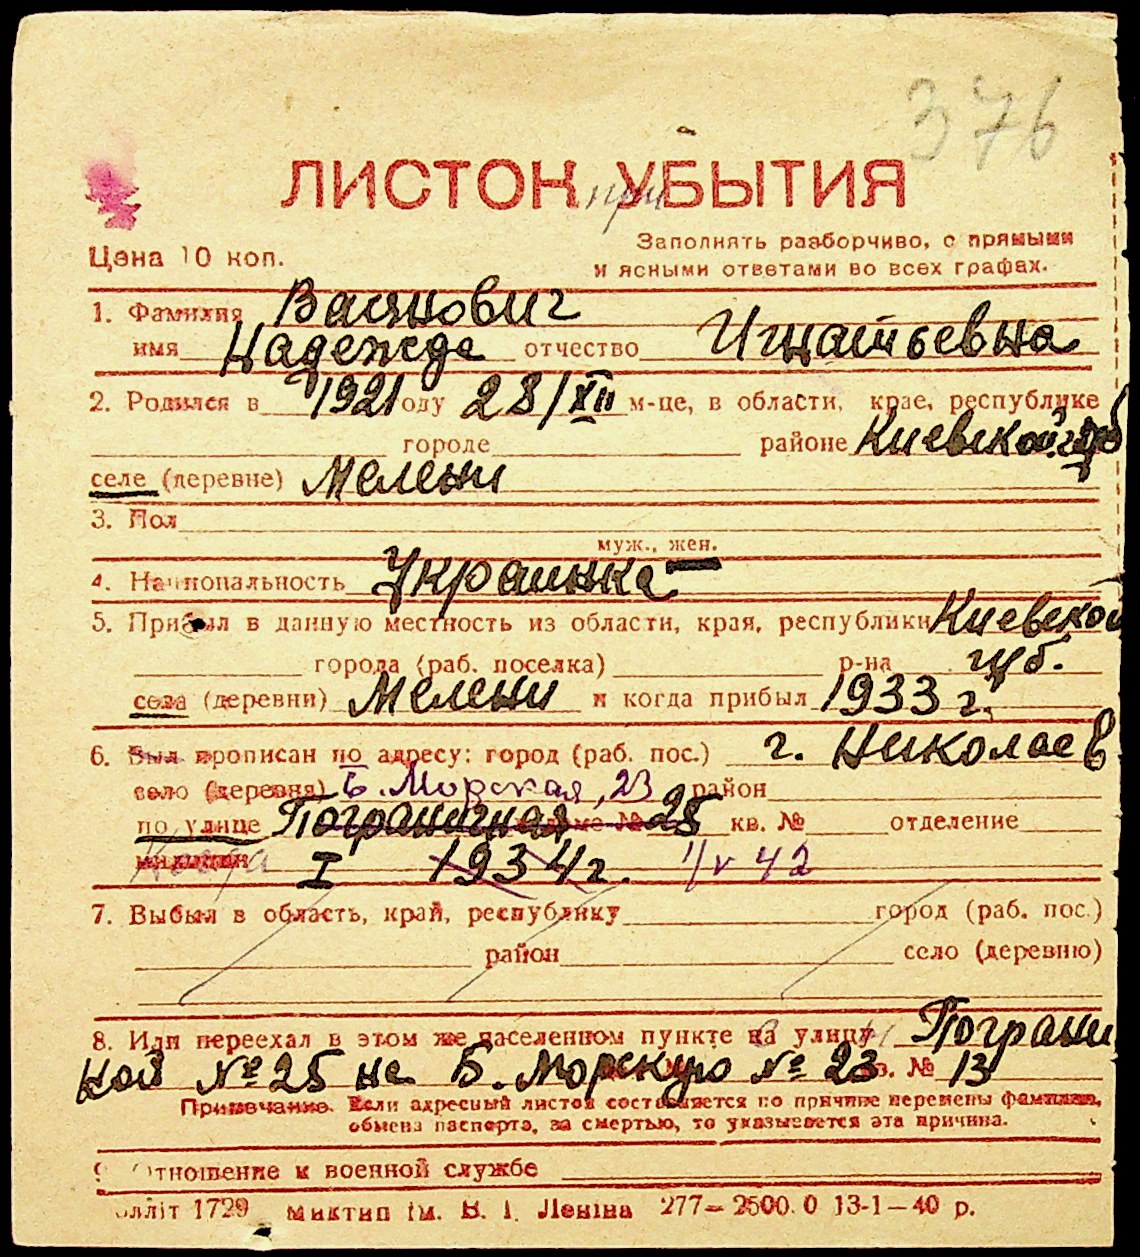 376
ЛИСТОК при УБЫТИЯ
Цена 10 коп.
Заполнять разборчиво, с прямыми
и ясными ответами во всех графах.
1. Фамилия Васянович
имя Надежда отчество Игнатьевна
2. Родился в 1921 году 28/XII м-це, в области, крае, республике
городе районе Киевской обл
селе (деревне) Мелени
3. Пол
муж., жен.
4. Национальность Украинка
5. Прибыл в данную местность из области, края, республики Киевской
города (раб. поселка) р-на обл.
села (деревни) Мелени и когда прибыл 1933 г.
6. Был прописан по адресу: город (раб. пос.) г. Николаев
село (деревня) Б. Морская, 23 район
по улице Пограничная доме № 25 кв. № отделение
милиции Когда I 1934 г. 1/V 42
7. Выбыл в область, край, республику город (раб. пос.)
район село (деревню)
8. Или переехал в этом же населенном пункте на улицу Пограни
ной № 25 на Б. Морскую № 23 кв. № 13
Примечание. Если адресный листок составляется по причине перемены фамилии,
обмена паспорта, за смертью, то указывается эта причина.
9. Отношение к военной службе
олліт 1729 Миктип ім. В. І. Леніна 277—2500.0 13-1—40 р.